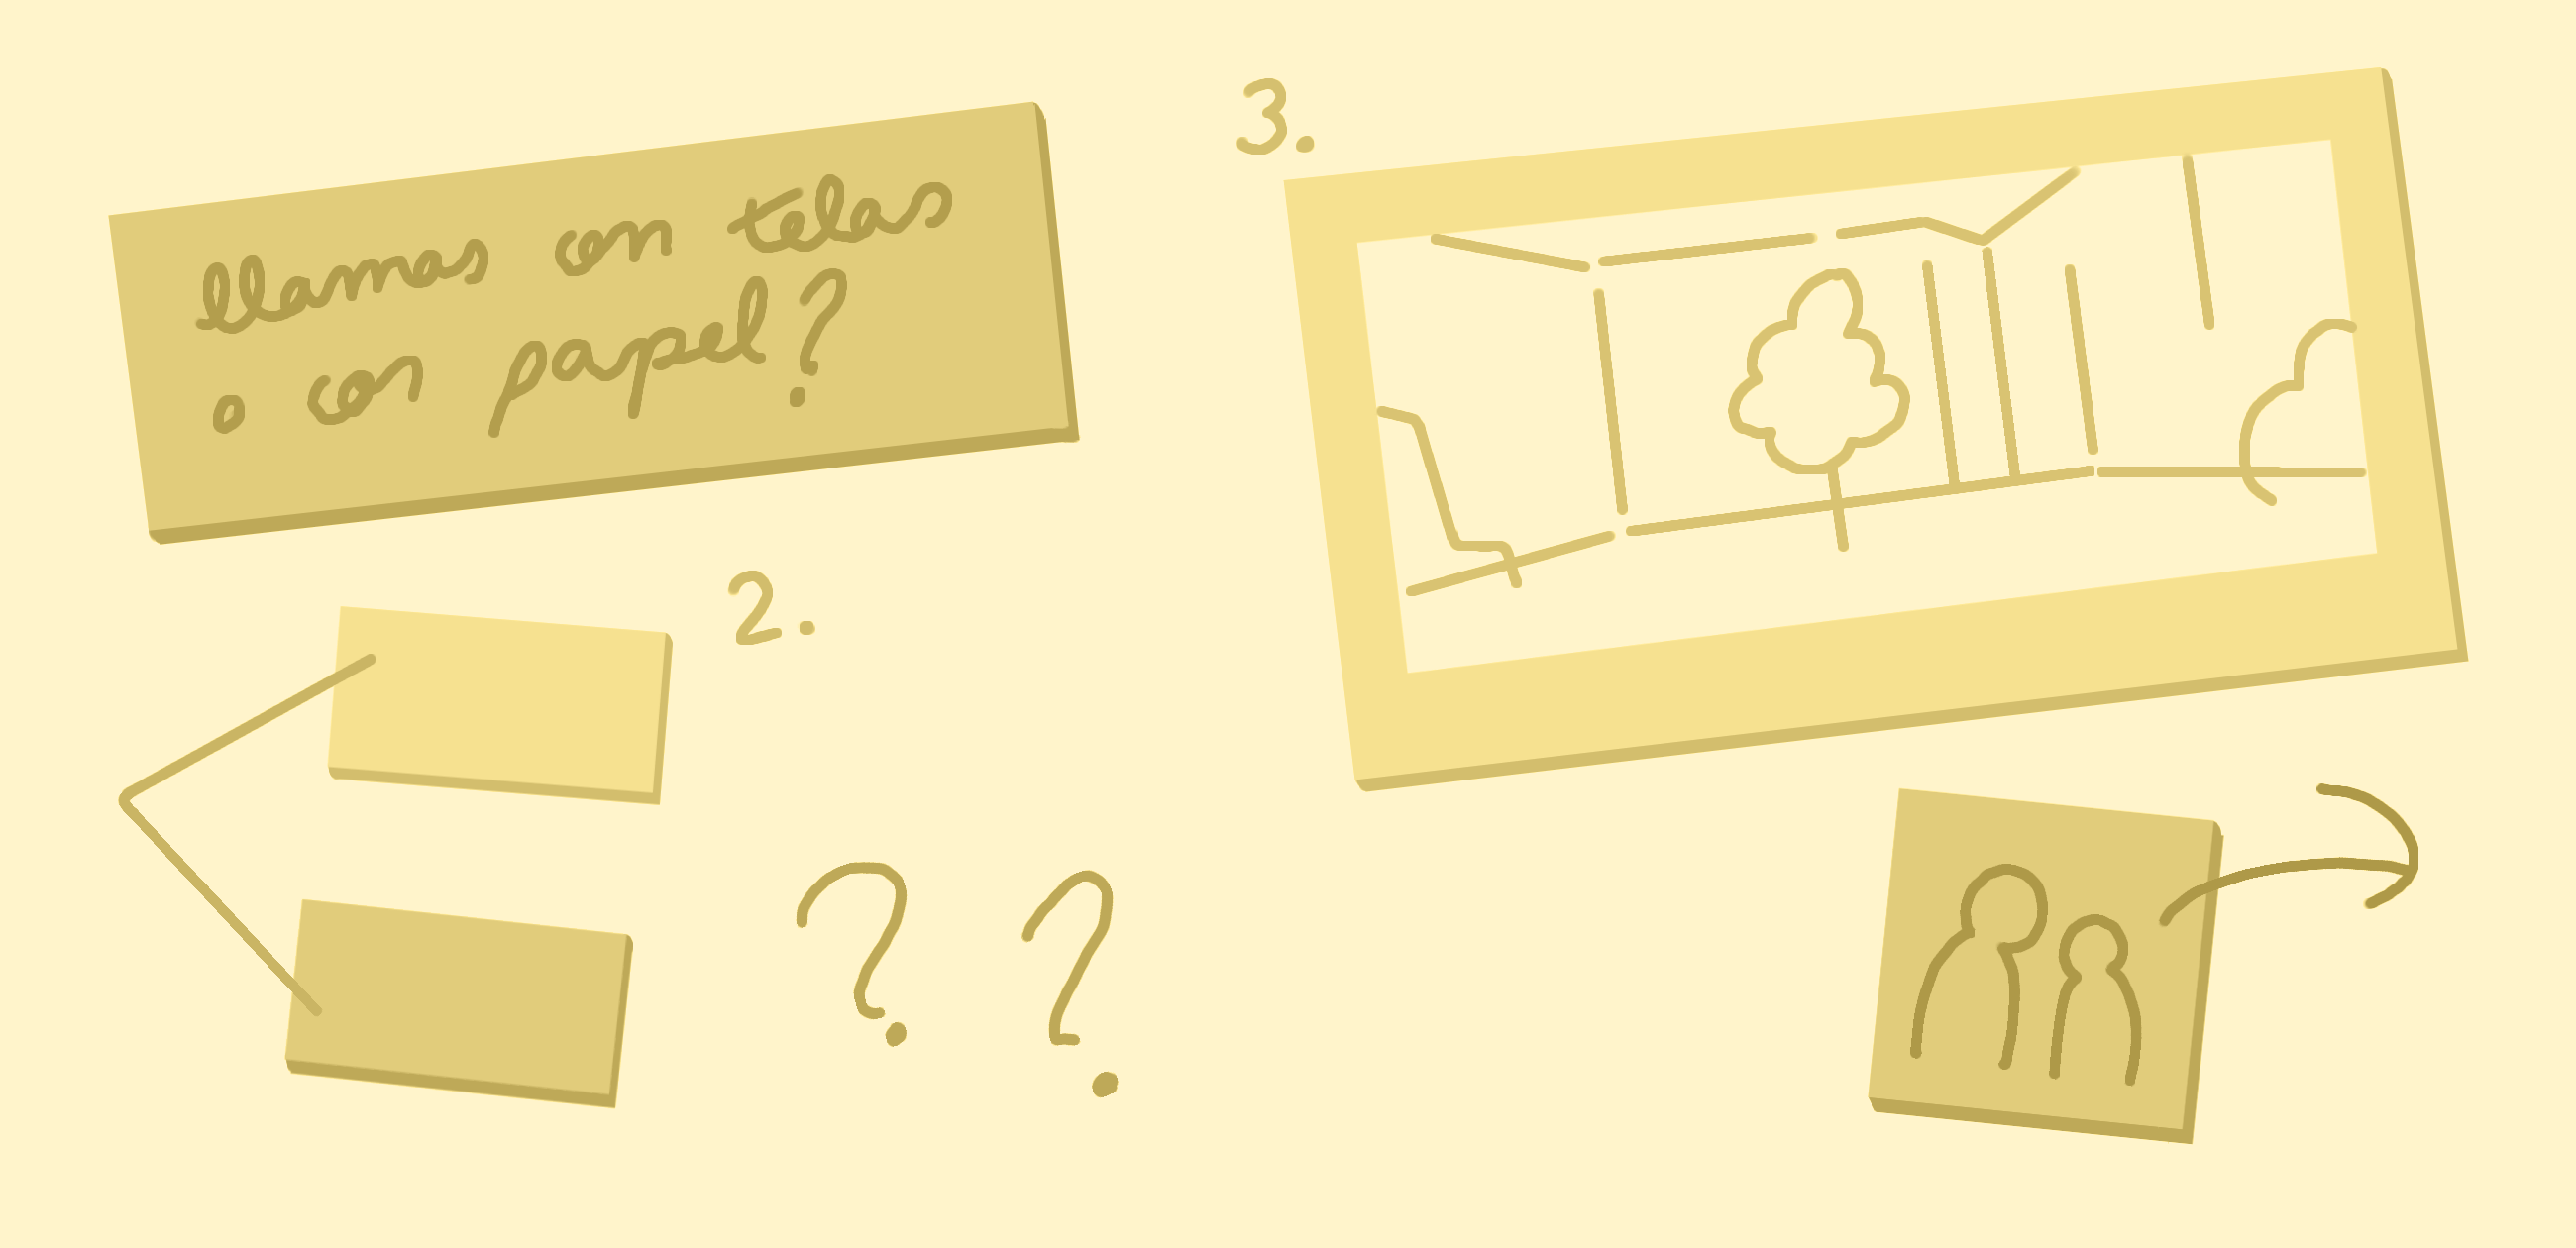 llamas con telas
o con papel?
2.
3.
? ?